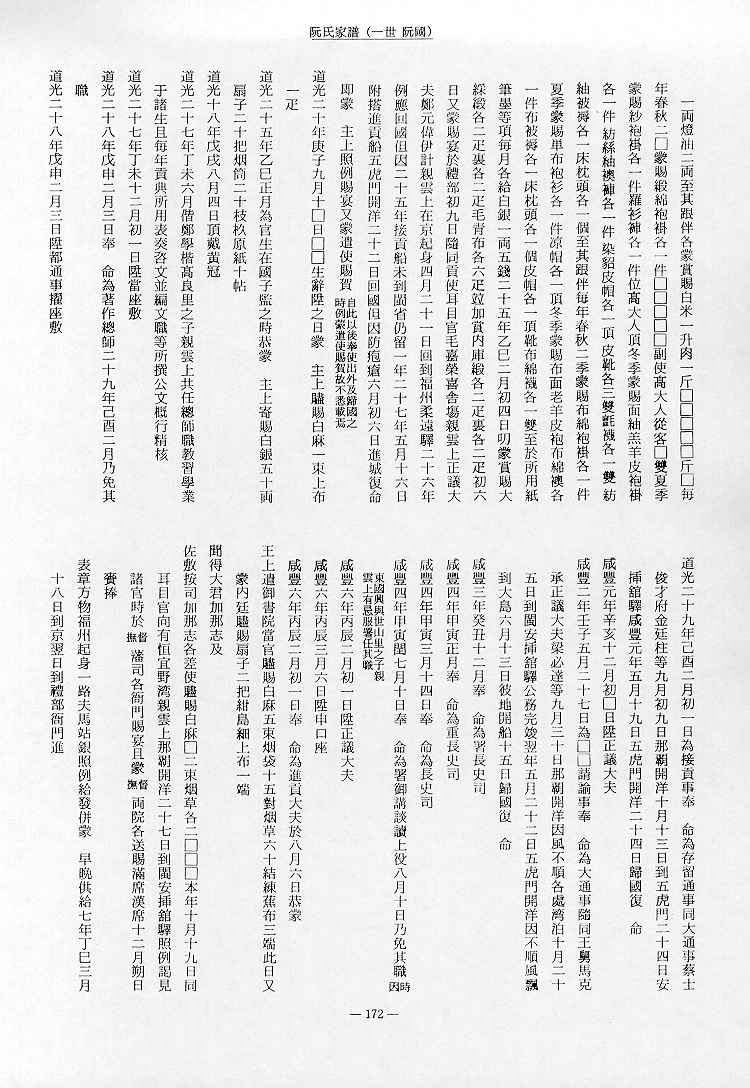 阮氏家譜（一世 阮國）
一両燈油二両至其跟伴各蒙賞賜白米一升肉一斤□□□□斤□毎
年春秋二□蒙賜緞綿袍褂各一件□□□□副使高大人從客□雙夏季
蒙賜紗袍褂各一件羅衫褲各一件位高大人頂冬季蒙賜面紬羔羊皮袍褂
各一件紡絲紬襖褲各一件染貂皮帽各一頂皮靴各三雙氈襪各一雙紡
紬被褥各一床枕頭各一個至其跟伴毎年春秋二季蒙賜布綿袍褂各一件
夏季蒙賜單布袍衫各一件凉帽各一頂冬季蒙賜布面老羊皮袍布綿襖各
一件布被褥各一床枕頭各一個皮帽各一頂靴布綿襪各一雙至於所用紙
筆墨等項毎月各給白銀一両五錢二十五年乙巳二月初四日叨蒙賞賜大
綵緞各二疋裏各二疋毛青布各六疋竝加賞内庫緞各二疋裏各二疋初六
日又蒙賜宴於禮部初九日隨同貢使耳目官毛嘉榮喜舎場親雲上正議大
夫鄭元偉伊計親雲上在京起身四月二十一日回到福州柔遠驛二十六年
例應回國但因二十五年接貢船未到閩省仍留一年二十七年五月十六日
附搭進貢船五虎門開洋二十二日回國但因防疱瘡六月初六日進城復命
即蒙　主上照例賜宴又蒙遣使賜賀 自此以後奉使出外及歸國之
時例蒙遣使賜賀故不悉載焉
道光二十年庚子九月十□日□□生辭陞之日蒙　主上贐賜白麻一束上布
一疋
道光二十五年乙巳正月為官生在國子監之時恭蒙　主上寄賜白銀五十両
扇子二十把烟筒二十枝杦原紙十帖
道光十八年戊戌八月四日頂戴黄冠
道光二十七年丁未六月偕鄭學楷高良里之子親雲上共任總師職教習學業
于諸生且毎年貢典所用表奏咨文並編文職等所撰公文概行精核
道光二十七年丁未十二月初一日陞當座敷
道光二十八年戊申二月三日奉　命為著作總師二十九年己酉二月乃免其
職
道光二十八年戊申二月三日陞都通事擢座敷
道光二十九年己酉二月初一日為接貢事奉　命為存留通事同大通事蔡士
俊才府金廷柱等九月初九日那覇開洋十月十三日到五虎門二十四日安
挿舘驛咸豐元年五月十九日五虎門開洋二十四日歸國復　命
咸豐元年辛亥十二月初□日陞正議大夫
咸豐二年壬子五月二十七日為□□請諭事奉　命為大通事隨同王舅馬克
承正議大夫梁必達等九月三十日那覇開洋因風不順各處湾泊十月二十
五日到閩安挿舘驛公務完竣翌年五月二十二日五虎門開洋因不順風飄
到大島六月十三日彼地開船十五日歸國復　命
咸豐三年癸丑十二月奉　命為署長史司
咸豐四年甲寅正月奉　命為重長史司
咸豐四年甲寅三月十四日奉　命為長史司
咸豐四年甲寅閏七月十日奉　命為署御講談讀上役八月十日乃免其職 時因
東國興與世山里之子親
雲上有忌服署任其職
咸豐六年丙辰二月初一日陞正議大夫
咸豐六年丙辰三月六日陞申口座
咸豐六年丙辰二月初一日奉　命為進貢大夫於八月六日恭蒙
王上遣御書院當官贐賜白麻五束烟袋十五對烟草六十結練蕉布三端此日又
蒙内廷贐賜扇子二把紺島細上布一端
聞得大君加那志及
佐敷按司加那志各差使贐賜白麻□二束烟草各二□□□本年十月十九日同
耳目官向有恒宜野湾親雲上那覇開洋二十七日到閩安挿舘驛照例謁見
諸官時於 督撫 藩司各衙門賜宴且蒙 督撫 両院各送賜滿席漢席十二月朔日
賫捧
表章方物福州起身一路夫馬站銀照例給發併蒙　早晩供給七年丁巳三月
十八日到京翌日到禮部衙門進
— 172 —